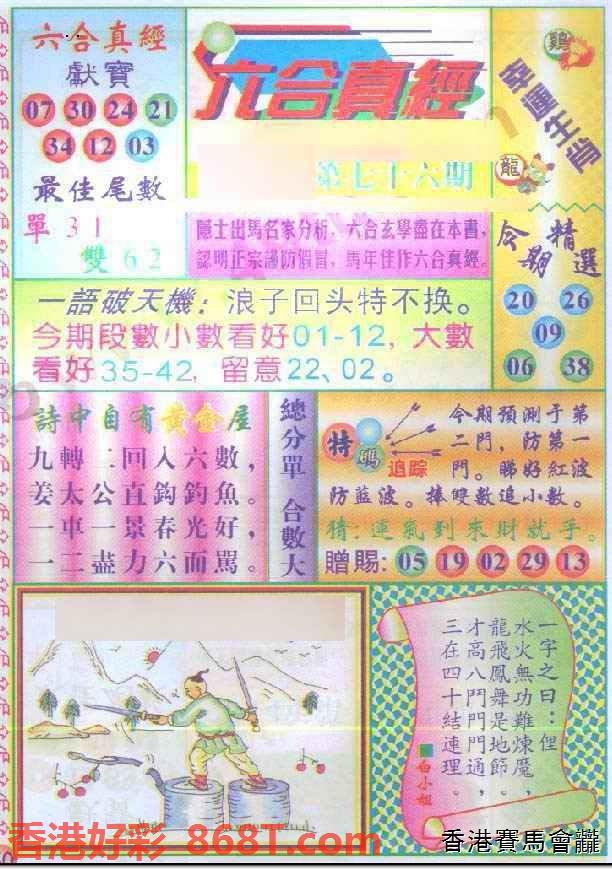 六合真經
獻寶
07 30 24 21
34 12 03
最佳尾數
單31
雙62
六合真經
第七十六期
鷄
幸運生肖
龍
隱士出馬名家分析，六合玄學盡在本書，
認明正宗謹防假冒，馬年佳作六合真經。
今期精選
20 26
09
06 38
一語破天機：浪子回头特不换。
今期段數小數看好01-12，大數
看好35-42，留意22、02。
詩中自有黃金屋
九轉二回入六數，
姜太公直鈎釣魚。
一車一景春光好，
一二盡力六而罵。
總分單 合數大
特碼
追踪
今期預測于第
二門，防第一
門。睇好紅波
防藍波。捧雙數追小數。
猜：運氣到來財就手。
贈賜：05 19 02 29 13
一字之曰：俚
水火無功難煉魔，
龍飛鳳舞是地節。
才高八門門門通，
三在四十結連理。
白小姐
香港好彩 8681.com
香港賽馬會